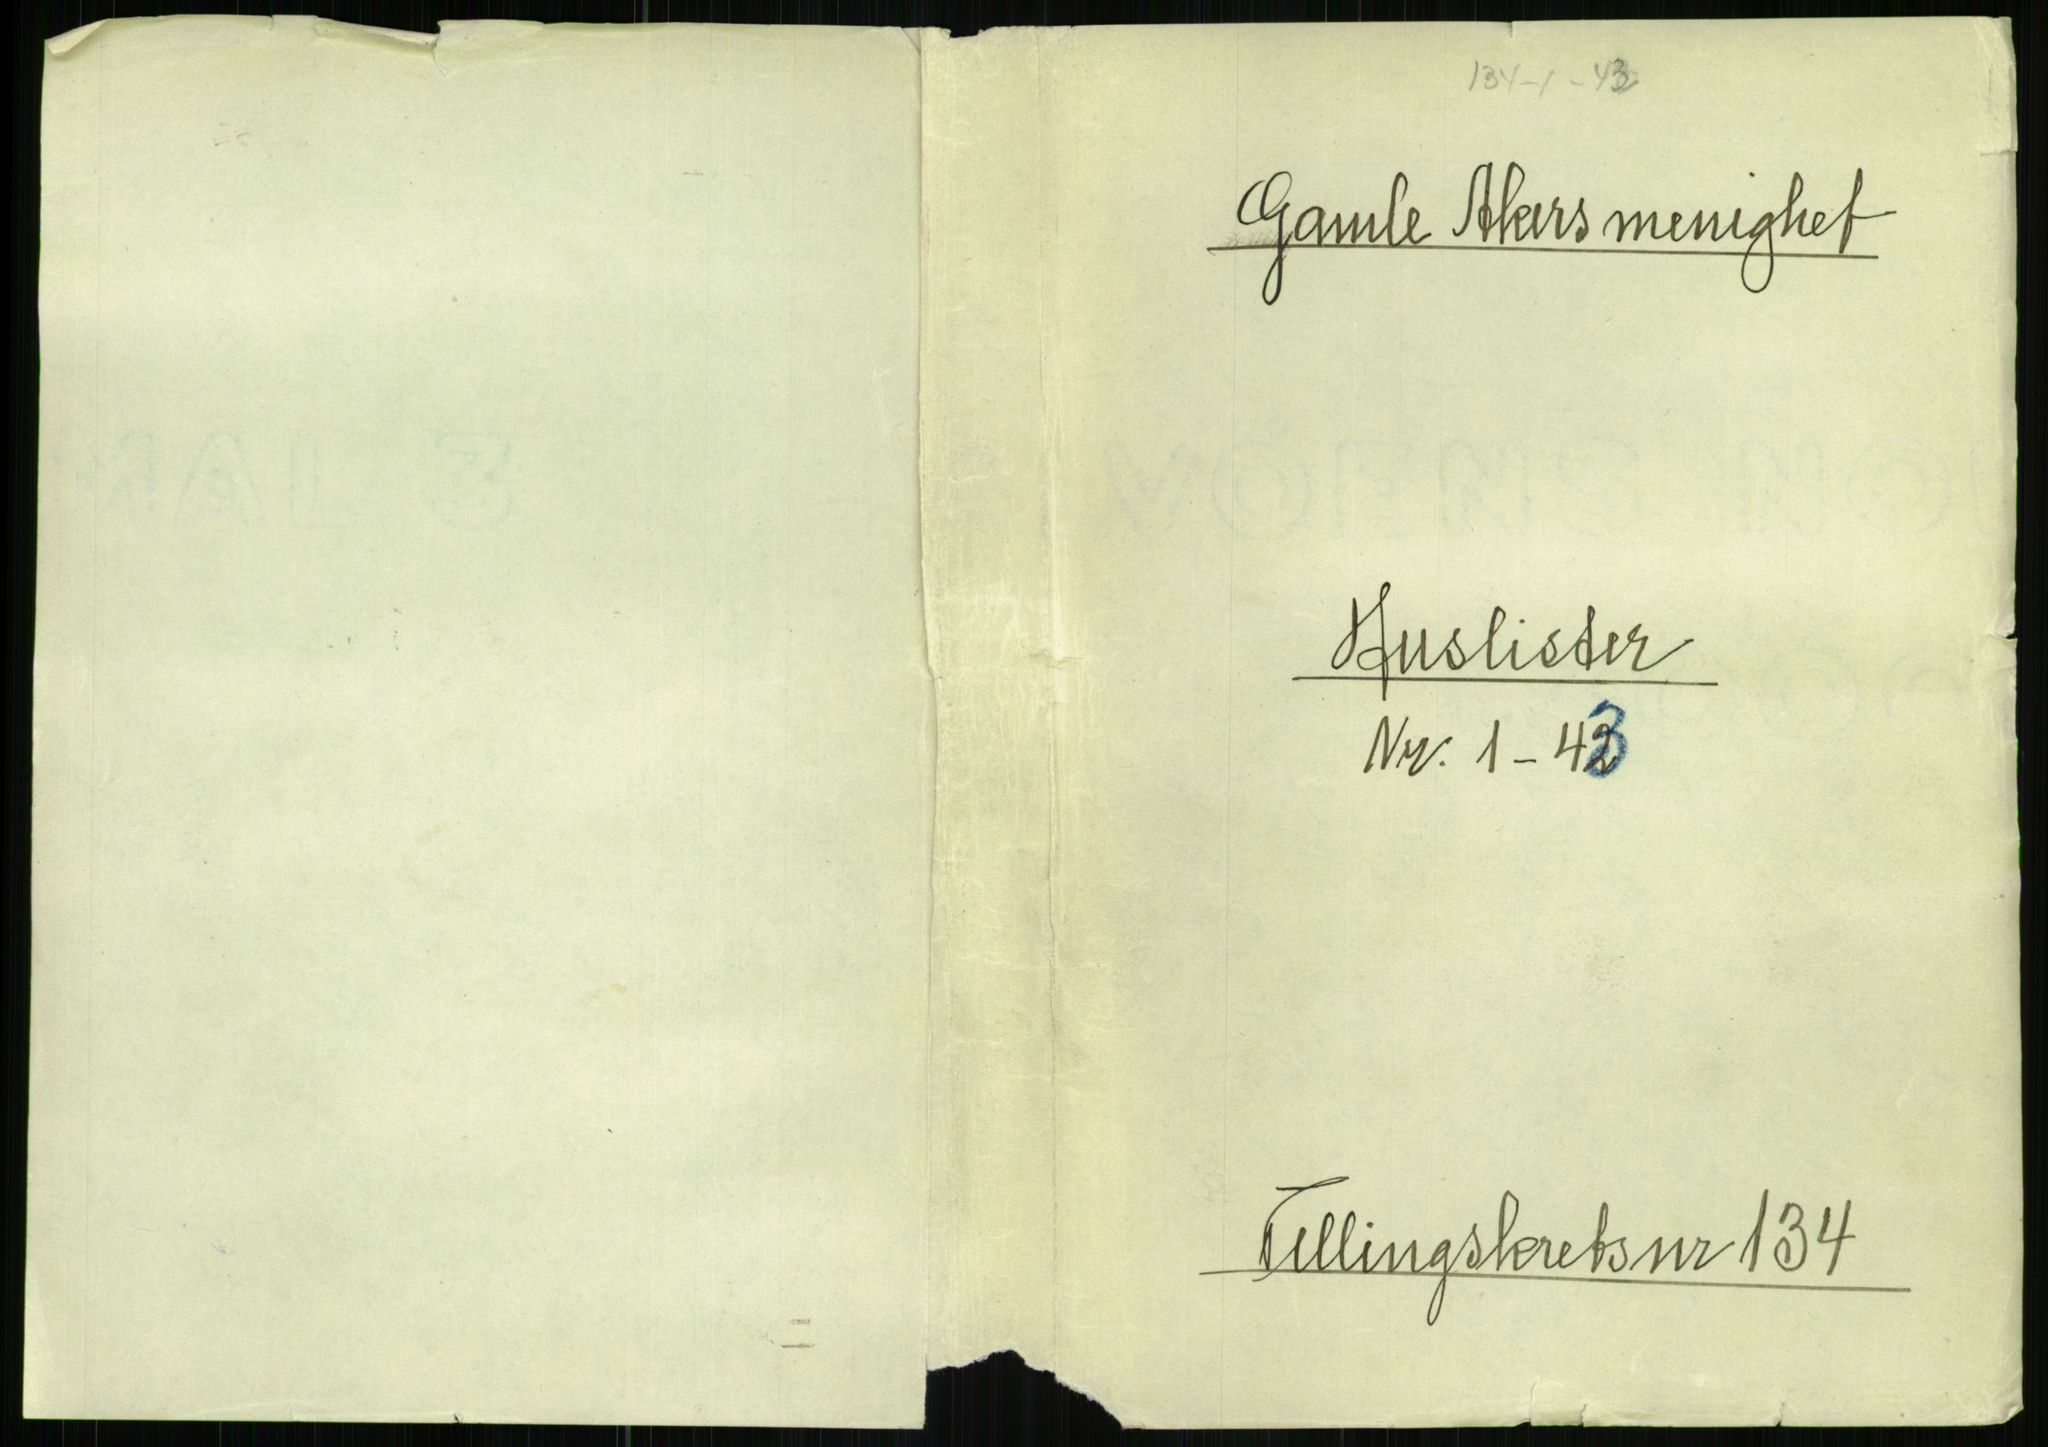 134-1-43
Gamle Akers menighet
Huslister
Nr. 1-43
Tellingskretsnr 134